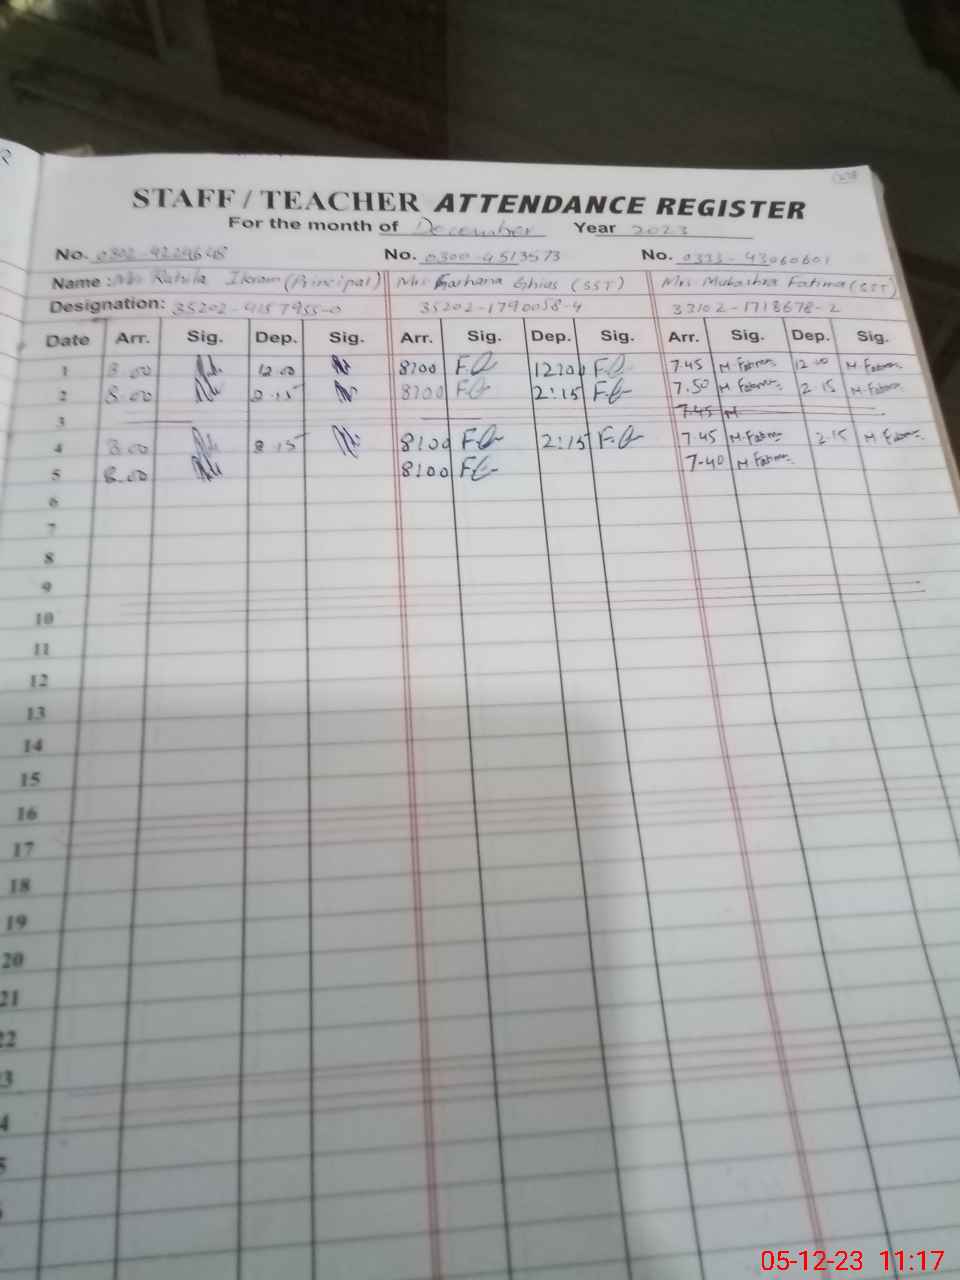 STAFF / TEACHER ATTENDANCE REGISTER
For the month of December Year 2023
No. No. 0300-4513573 No. 0333-43060601
Name: Mrs Rahila Ikram (Principal) Mrs Farhana Ghias (SST) Mrs Mubashra Fatima (SST)
Designation: 35202-4157955-0 35202-1790058-4 33102-1718678-2
Date Arr. Sig. Dep. Sig. Arr. Sig. Dep. Sig. Arr. Sig. Dep. Sig.
1 8.00 12.00 8:00 12:00 7.45 M Fatima 12.00 M Fatima
2 8.00 2.15 8:00 2:15 7.50 M Fatima 2.15 M Fatima
3 7.45 M
4 8.00 2.15 8:00 2:15 7.45 M Fatima 2.15 M Fatima
5 8.00 8:00 7.40 M Fatima
6
7
8
9
10
11
12
13
14
15
16
17
18
19
20
21
22
3
4
5
05-12-23 11:17